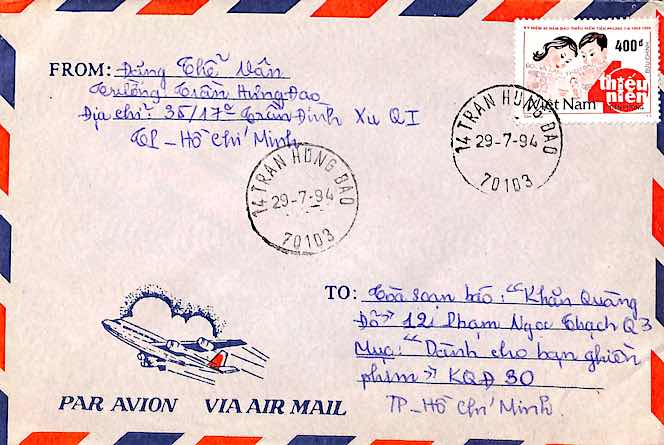 400đ
BƯU CHÍNH
thiếu
niên
TIỀN PHONG
Việt Nam
FROM: Đặng Thế Vân
Trường: Trần Hưng Đạo
Địa chỉ: 35/17c Trần Đình Xu QI
TP - Hồ Chí Minh
14 TRẦN HƯNG ĐẠO
29-7-94
70103
14 TRẦN HƯNG ĐẠO
29-7-94
70103
TO: Tòa soạn báo: "Khăn Quàng
Đỏ" 12 Phạm Ngọc Thạch Q3
Mục: "Dành cho bạn ghiền
phim" KQĐ 30
TP - Hồ Chí Minh.
PAR AVION VIA AIR MAIL